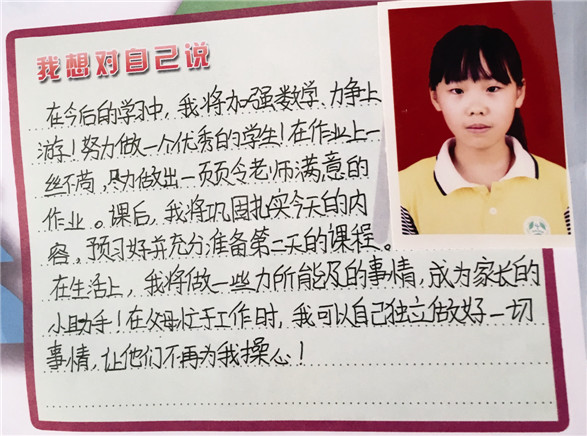 我想对自己说
在今后的学习中,我将加强数学,力争上
游!努力做一个优秀的学生!在作业上一
丝不苟,尽力做出一页页令老师满意的
作业。课后,我将巩固扎实今天的内
容,预习好并充分准备第二天的课程。
在生活上,我将做一些力所能及的事情,成为家长的
小助手!在父母忙于工作时,我可以自己独立做好一切
事情,让他们不再为我操心!